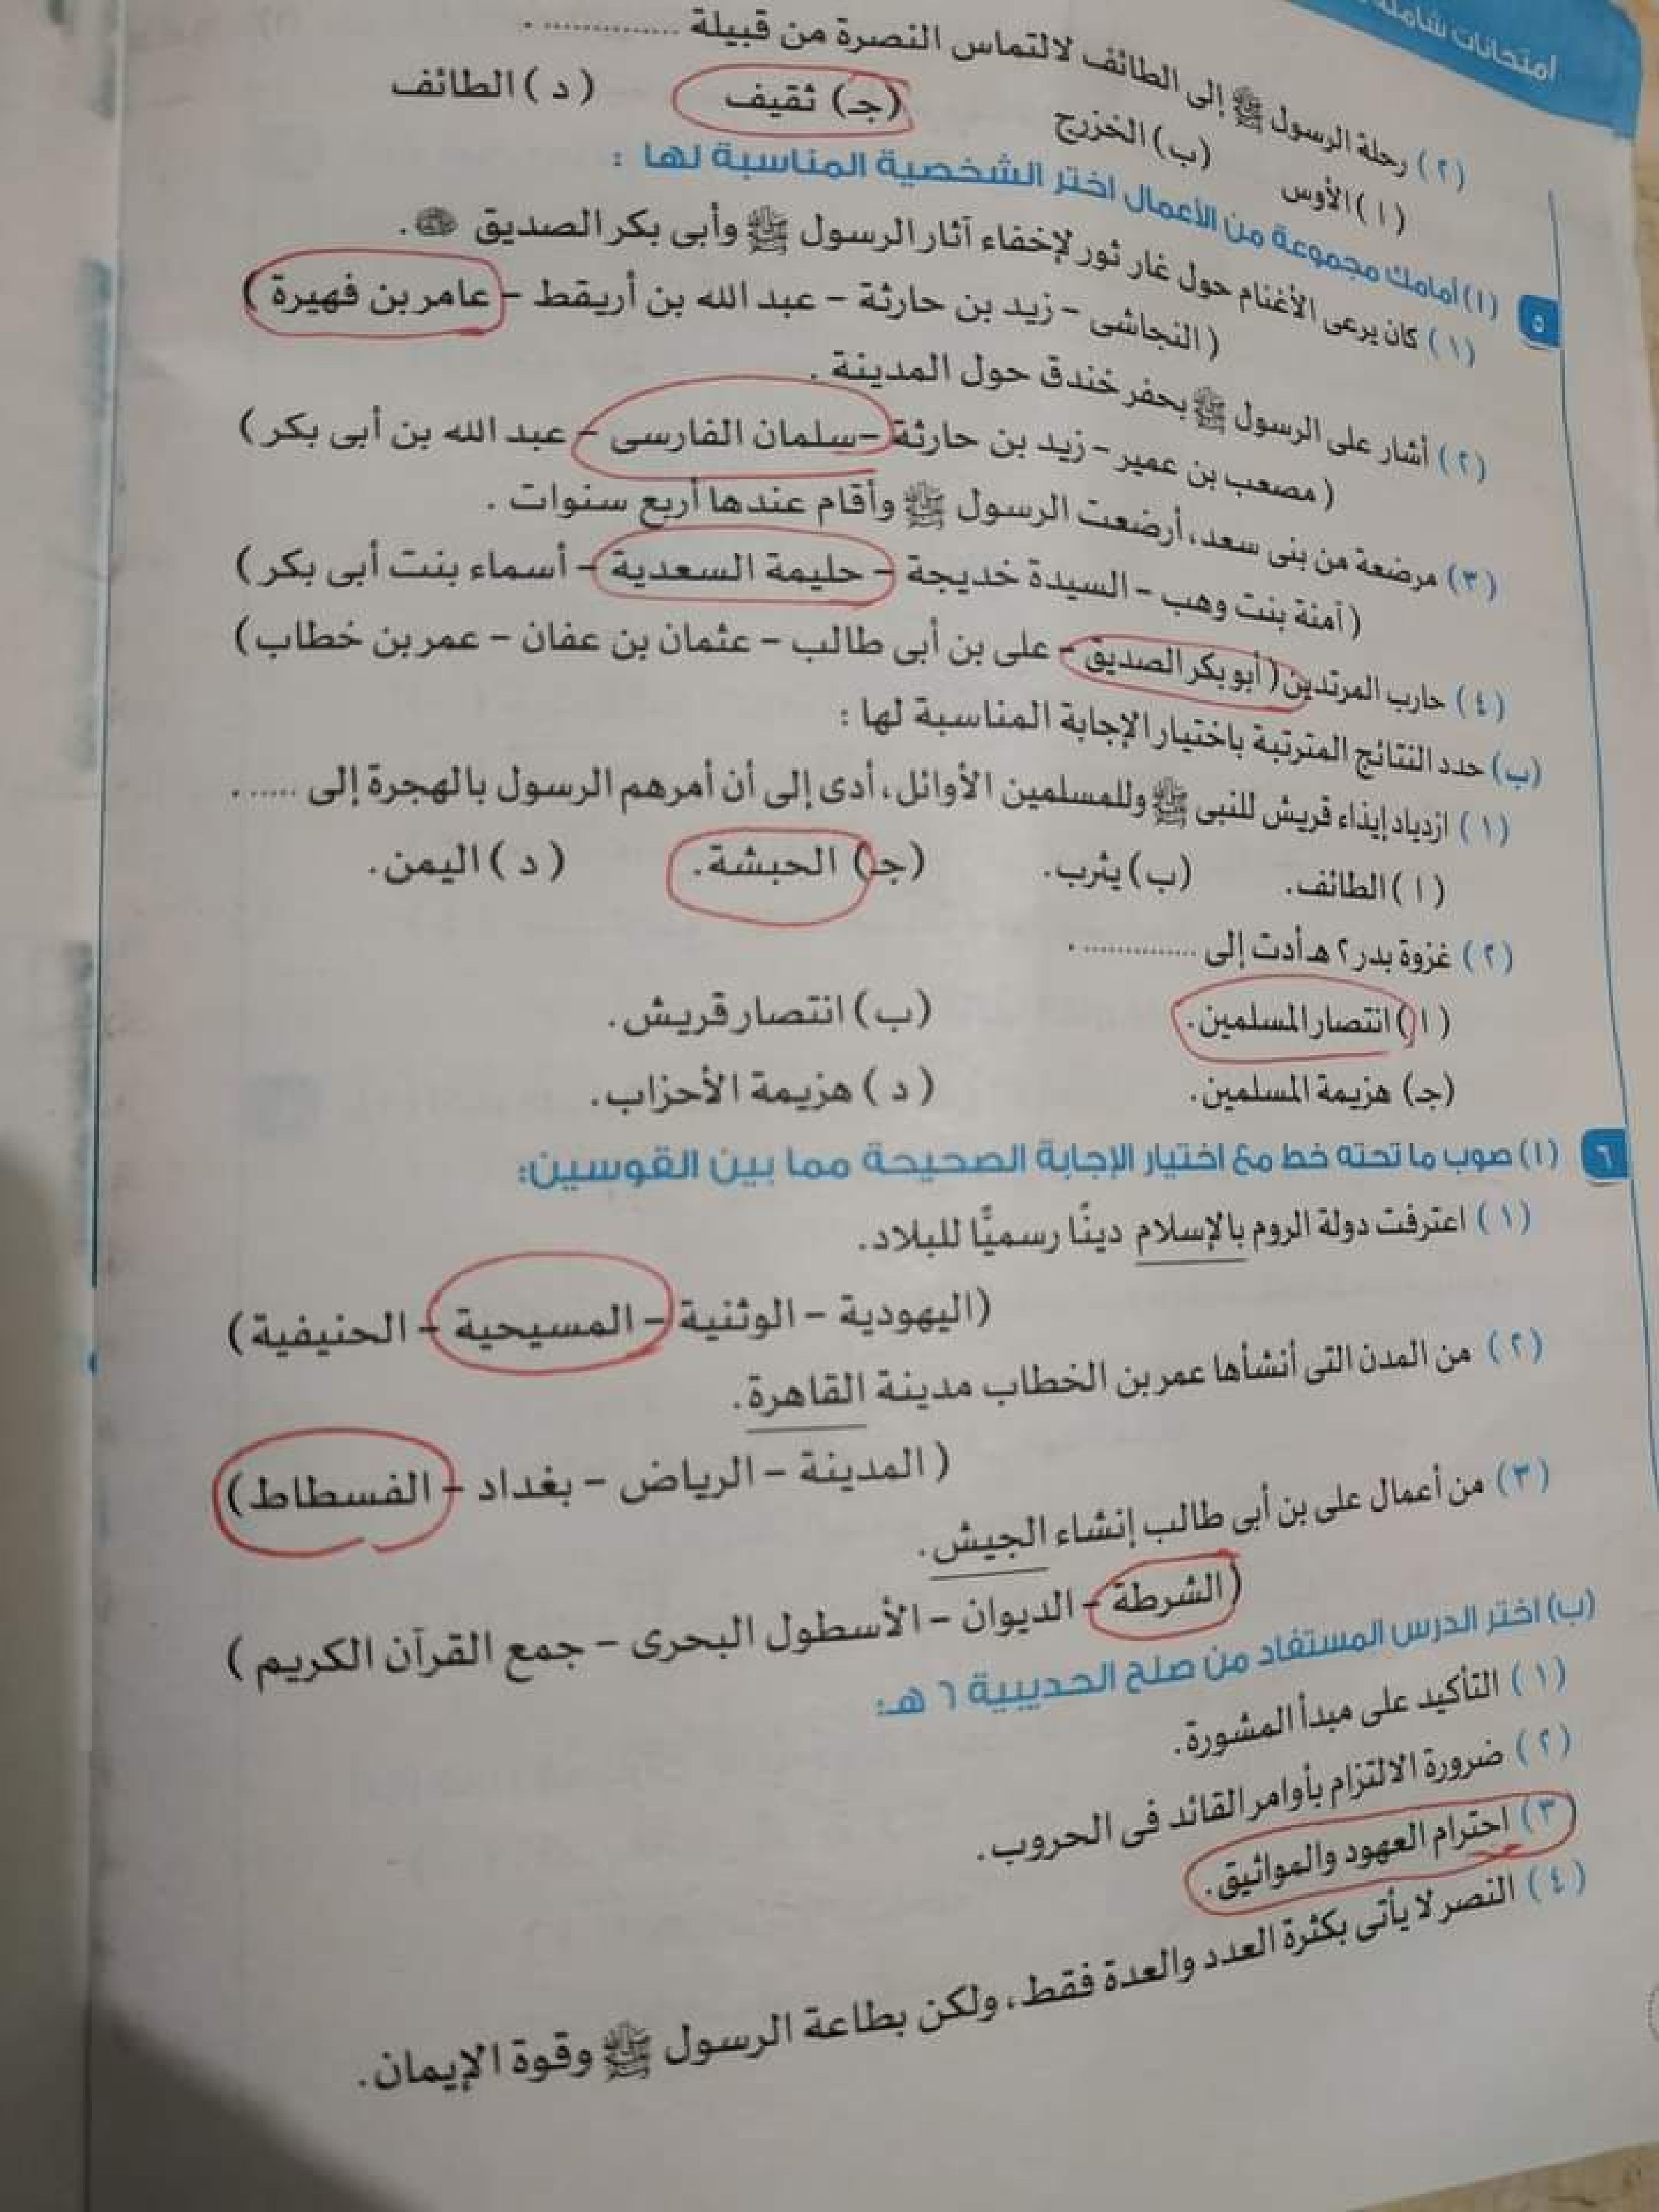 امتحانات شاملة
(٢) رحلة الرسول ﷺ إلى الطائف لالتماس النصرة من قبيلة ............... .
(ا) الأوس (ب) الخزرج (جـ) ثقيف (د) الطائف
٥ (ا) أمامك مجموعة من الأعمال اختر الشخصية المناسبة لها :
(١) كان يرعى الأغنام حول غار ثور لإخفاء آثار الرسول ﷺ وأبى بكر الصديق .
(النجاشى - زيد بن حارثة - عبد الله بن أريقط - عامر بن فهيرة)
(٢) أشار على الرسول ﷺ بحفر خندق حول المدينة .
(مصعب بن عمير - زيد بن حارثة - سلمان الفارسى - عبد الله بن أبى بكر)
(٣) مرضعة من بنى سعد، أرضعت الرسول ﷺ وأقام عندها أربع سنوات .
(آمنة بنت وهب - السيدة خديجة - حليمة السعدية - أسماء بنت أبى بكر)
(٤) حارب المرتدين (أبو بكر الصديق - على بن أبى طالب - عثمان بن عفان - عمر بن خطاب)
(ب) حدد النتائج المترتبة باختيار الإجابة المناسبة لها :
(١) ازدياد إيذاء قريش للنبى ﷺ وللمسلمين الأوائل، أدى إلى أن أمرهم الرسول بالهجرة إلى ...... .
(ا) الطائف. (ب) يثرب. (جـ) الحبشة. (د) اليمن.
(٢) غزوة بدر ٢ هـ أدت إلى .............. .
(ا) انتصار المسلمين. (ب) انتصار قريش.
(جـ) هزيمة المسلمين. (د) هزيمة الأحزاب.
٦ (ا) صوب ما تحته خط مع اختيار الإجابة الصحيحة مما بين القوسين:
(١) اعترفت دولة الروم بالإسلام دينًا رسميًّا للبلاد.
(اليهودية - الوثنية - المسيحية - الحنيفية)
(٢) من المدن التى أنشأها عمر بن الخطاب مدينة القاهرة.
(المدينة - الرياض - بغداد - الفسطاط)
(٣) من أعمال على بن أبى طالب إنشاء الجيش.
(الشرطة - الديوان - الأسطول البحرى - جمع القرآن الكريم)
(ب) اختر الدرس المستفاد من صلح الحديبية ٦ هـ:
(١) التأكيد على مبدأ المشورة.
(٢) ضرورة الالتزام بأوامر القائد فى الحروب.
(٣) احترام العهود والمواثيق.
(٤) النصر لا يأتى بكثرة العدد والعدة فقط، ولكن بطاعة الرسول ﷺ وقوة الإيمان.